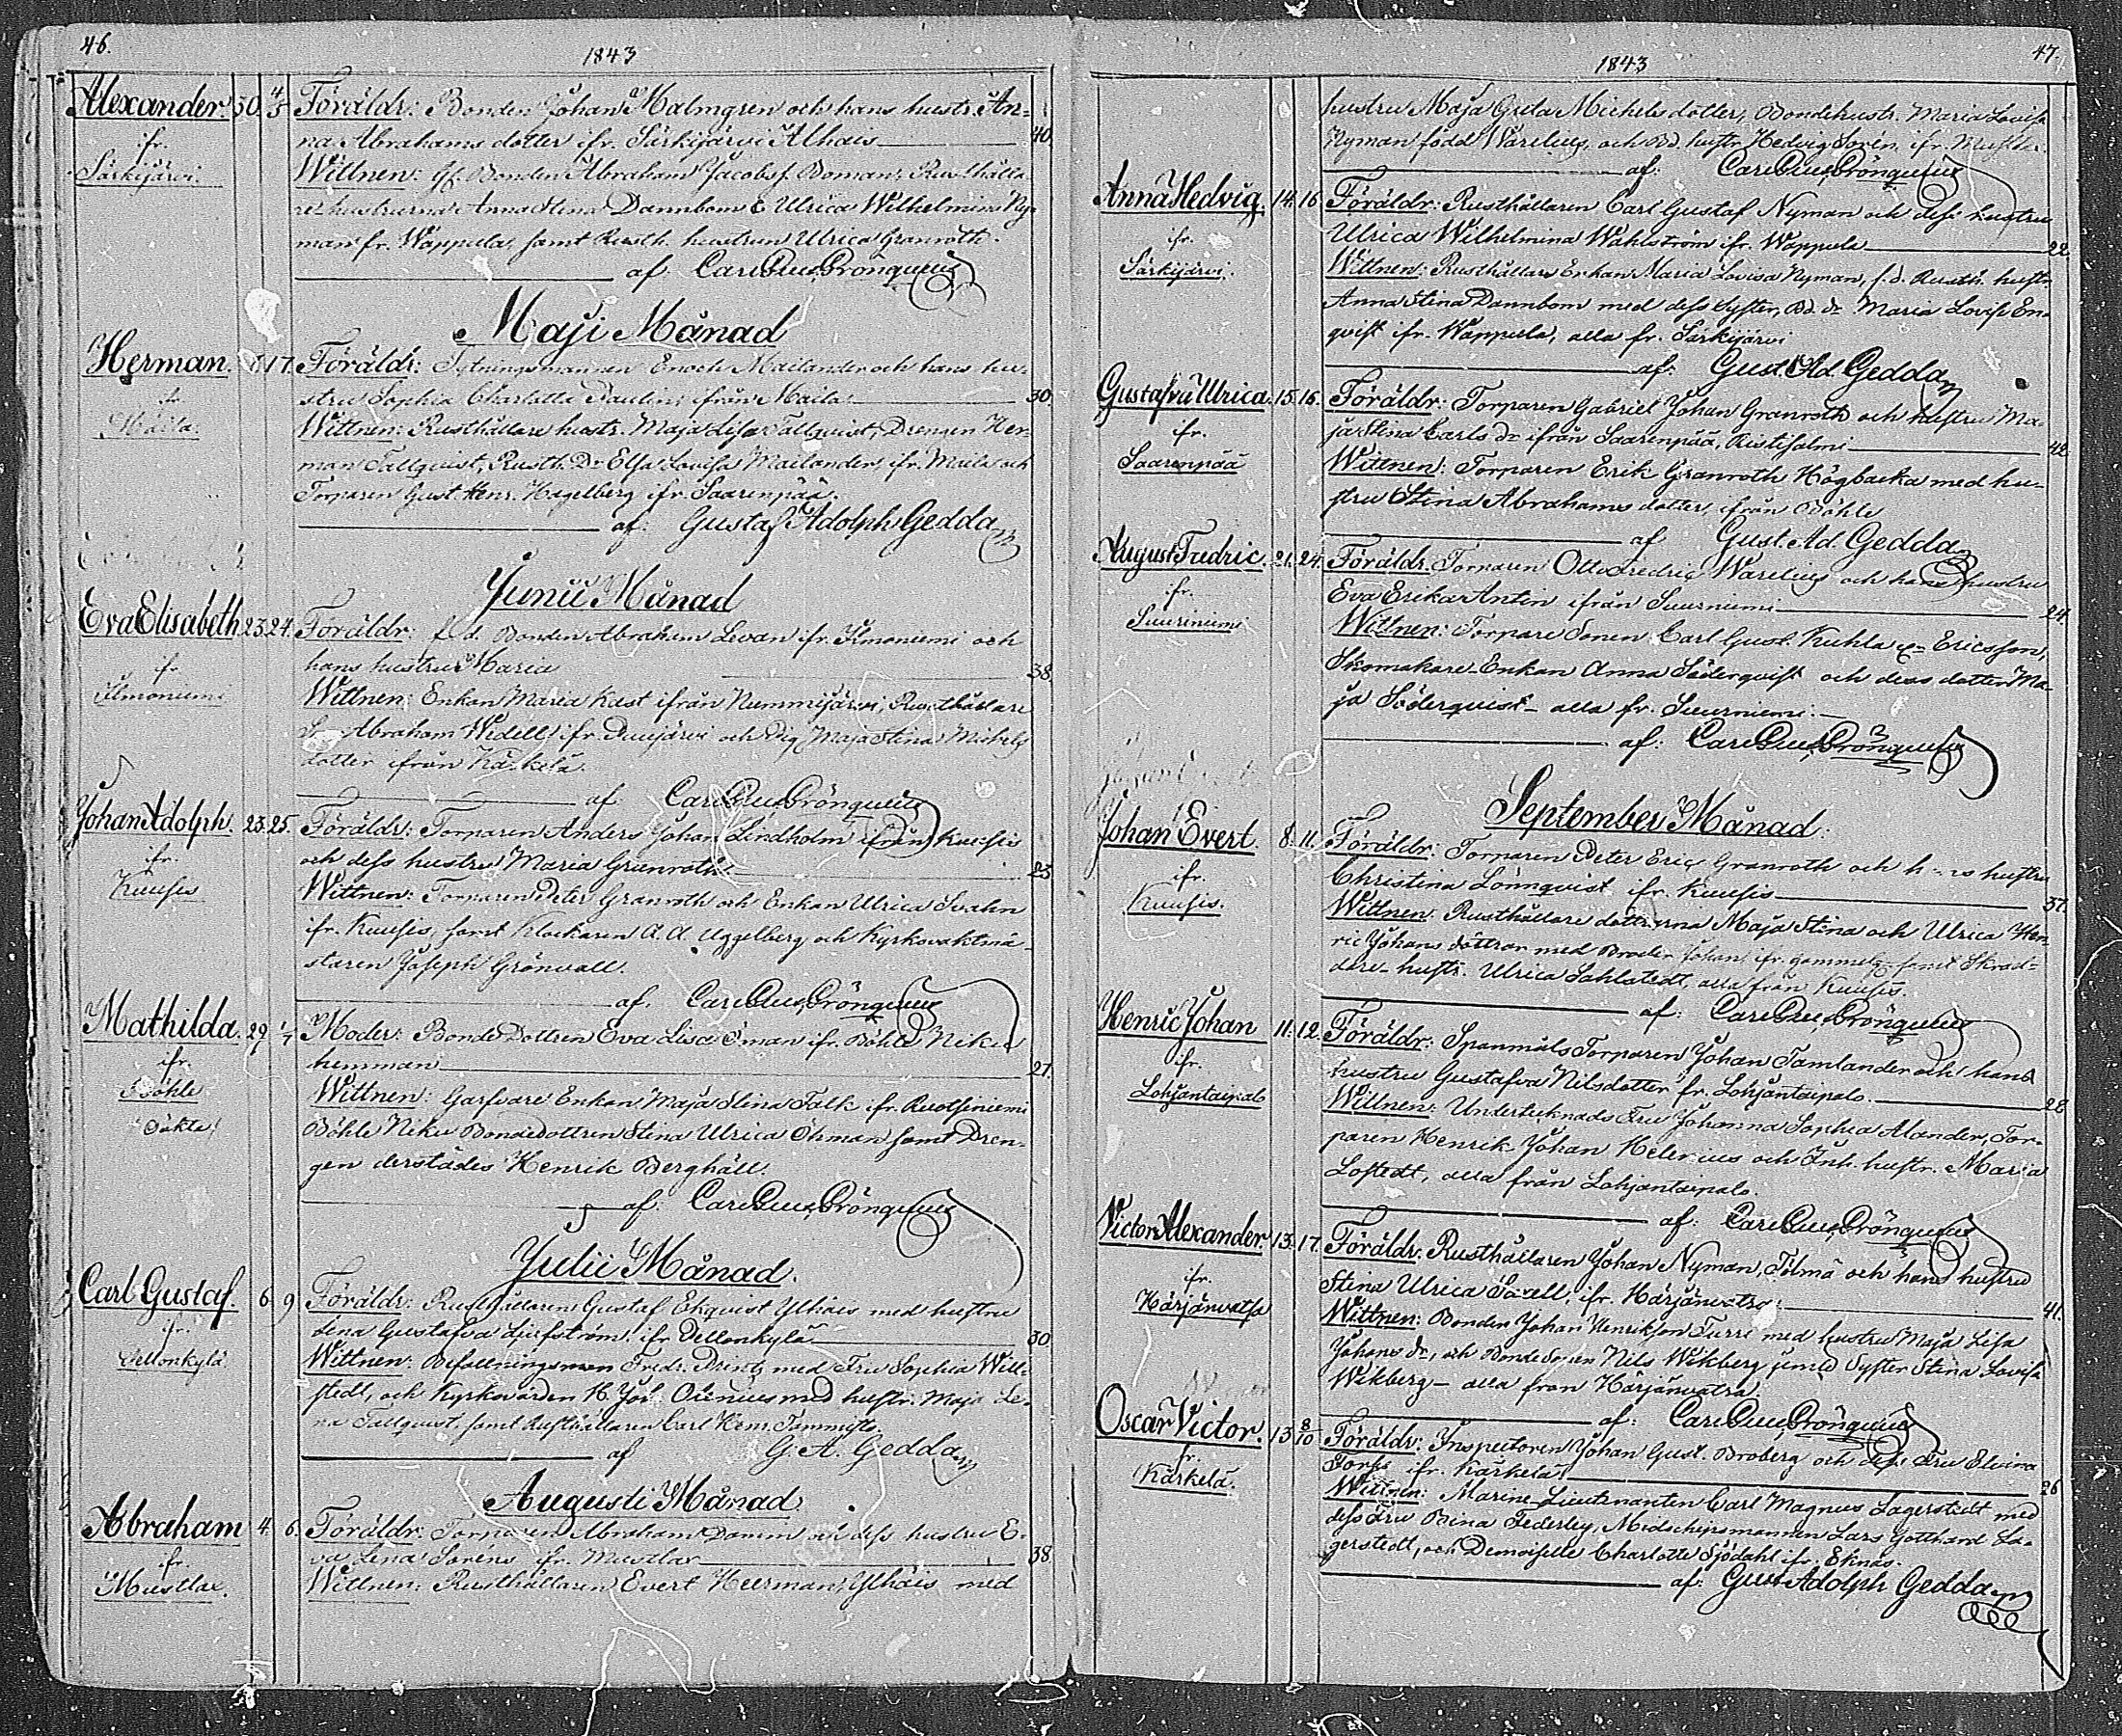 46.
1843
Alexander. 30. 4/5 Föräldr: Bonden Johan Malmgren och hans hustr. An=
ifr. na Abrahams dotter ifr. Särkijärvi Alhais 40.
Särkijärvi. Wittnen: Bonden Abraham Jacobss. Boman, Rusthålla
re hustrurna Anna Stina Dannbom & Ulrica Wilhelmina Ny-
man fr. Wappula, samt Rusth. hustrun Ulrica Granroth.
af
Maji Månad
Herman. 17. Föräldr: Sytningsmannen Enoch Mailander och hans hu-
ifr. stru Sophia Charlotta Paulin, ifrån Maila 30.
Maila. Wittnen: Rusthållare hustr. Maja Lisa Tallquist, Drengen Her-
man Tallqvist, Rusth. Dr. Elsa Lovisa Mailander, ifr. Maila och
Torparen Gust. Henr. Hagelberg ifr. Saarenpää.
af: Gustaf Adolph Gedda
Junii Månad
Eva Elisabeth 23. 24. Föräldr: f. d. Bonden Abraham Levan ifr. Ilmoniemi och
ifr. hans hustru Maria 38.
Ilmoniemi Wittnen: Enkan Maria Kast ifrån Nummijärvi, Rusthållare
Abraham Widell ifr. och Pig. Maja Stina Michels
dotter ifrån Kärkelä.
af
Johan Adolph. 23. 25. Föräldr: Torparen Anders Johan Lindholm ifrån Kuusis
ifr. och dess hustru Maria Granroth 23
Kuusis Wittnen: Torparen Peter Granroth och Enkan Ulrica Svahn
ifr. Kuusis, samt Klockaren A. A. Uggelberg och Kyrkovaktmä-
staren Joseph Grönvall.
af.
Mathilda. 29. 1/7 Moder: Bonde Dottren Eva Lisa Öman ifr. Böhle Niku
ifr. hemman 27.
Böhle Wittnen: Garfvare Enkan Maja Stina Falk ifr. Ruotsiniemi
Oäkta Böhle Niku Bondedottren Stina Ulrica Öhman samt Dren-
gen derstädes Henrik Berghäll.
af:
Julii Månad.
Carl Gustaf. 6 9 Föräldr: Rusthållaren Gustaf Ekqvist Ylhäis med hustru
ifr. Lena Gustafva Ljufström, ifr. Vellonkylä 30
Wittnen: Befallningsman Fredr. Printz med Fru Sophia Will-
stedt, och Kyrkovärden med hustr. Maja Le-
na Tallquist, samt Rusthållaren Carl Henr. Tammisto.
af G. A. Gedda
Augusti Månad
Abraham 4. 6. Föräldr: Torparen Abraham Damm och dess hustru E-
ifr. va Lena Soréns ifr. Mustlax 38.
Mustlax. Wittnen: Rusthållaren Evert Heerman, Ylhäis med
47.
1843
hustru Maja Greta Michelsdotter, Bondehustr. Maria Lovisa
Nyman född Warelius, och Bd. hustr. Hedvig Sorén, ifr. Mustlax.
af:
Anna Hedvig. 14. 16. Föräldr: Rusthållaren Carl Gustaf Nyman och dess hustru
ifr. Ulrica Wilhelmina Wahlström ifr. Wappula 22
Särkijärvi. Wittnen: Rusthållare Enkan Maria Lovisa Nyman, f. d. Rusth. hustr.
Anna Stina Dannbom med dess Syster, Bd. Dr. Maria Lovisa En-
qvist ifr. Wappula, alla fr. Särkijärvi
af: Gust. Ad. Gedda
Gustafva Ulrica. 15. 16. Föräldr: Torparen Gabriel Johan Granroth och hustru Ma-
ifr. ja Stina Carls Dr. ifrån Saarenpää, Ristisalmi 42.
Saarenpää Wittnen: Torparen Erik Granroth Högbacka med hu-
stru Stina Abrahams dotter, ifrån Böhle
af Gust. Ad. Gedda
August Fredric. 21. 24. Föräldr: Torparen Otto Fredric Warelius och hans hustru
ifr. Eva Erika Antin ifrån Suurniemi 24.
Suurniemi Wittnen: Torpare Sonen Carl Gust. Kuhla Ericsson,
Skomakare-Enkan Anna Söderqvist och dess dotter Ma-
ja Söderquist – alla fr. Suurniemi.
af:
September Månad.
Johan Evert. 8. 11. Föräldr: Torparen Peter Eric Granroth och hustru
ifr. Christina Lönnqvist ifr. Kuusis 37.
Kuusis. Wittnen: Rusthållare döttrarna Maja Stina och Ulrica Hen-
ric Johans döttrar med Broder Johan, ifr. samt Skräd=
dare-hustr. Ulrica Sahlstedt, alla från Kuusis.
af:
Henric Johan 11. 12. Föräldr: Spanmåls Torparen Johan Tamlander och hans
ifr. hustru Gustafva Nilsdotter fr. Lohjantaipale 28
Lohjantaipale Wittnen: Undertecknads Fru Johanna Sophia Alander, Tor-
paren Henrik Johan Helenius och Inh. hustr. Maria
Lofstedt, alla från Lohjantaipale.
af:
Victor Alexander. 13. 17. Föräldr. Rusthållaren Johan Nyman, Tölmä och hans hustru
ifr. Stina Ulrica, ifr. Härjänvatsa 41.
Härjänvatsa Wittnen: Bonden Johan Henriksson Turri med hustru Maja Lisa
Johans Dr., och Bonde Sonen Nils Wikberg jemte Syster Stina Lovisa
Wikberg – alla från Härjänvatsa.
af:
Oscar Victor. 13 8/10 Föräldr: Inspectoren Johan Gust. Broberg och dess Fru Elvina
fr. Forss ifr. Kärkelä 26
Kärkelä. Wittnen: Marine-Lieutenanten Carl Magnus Lagerstedt med
dess Fru Bina Federley, Midschipsmannen Lars Gotthard La-
gerstedt, och Demoiselle Charlotte Sjödahl ifr. Eknäs.
af: Gust. Adolph Gedda